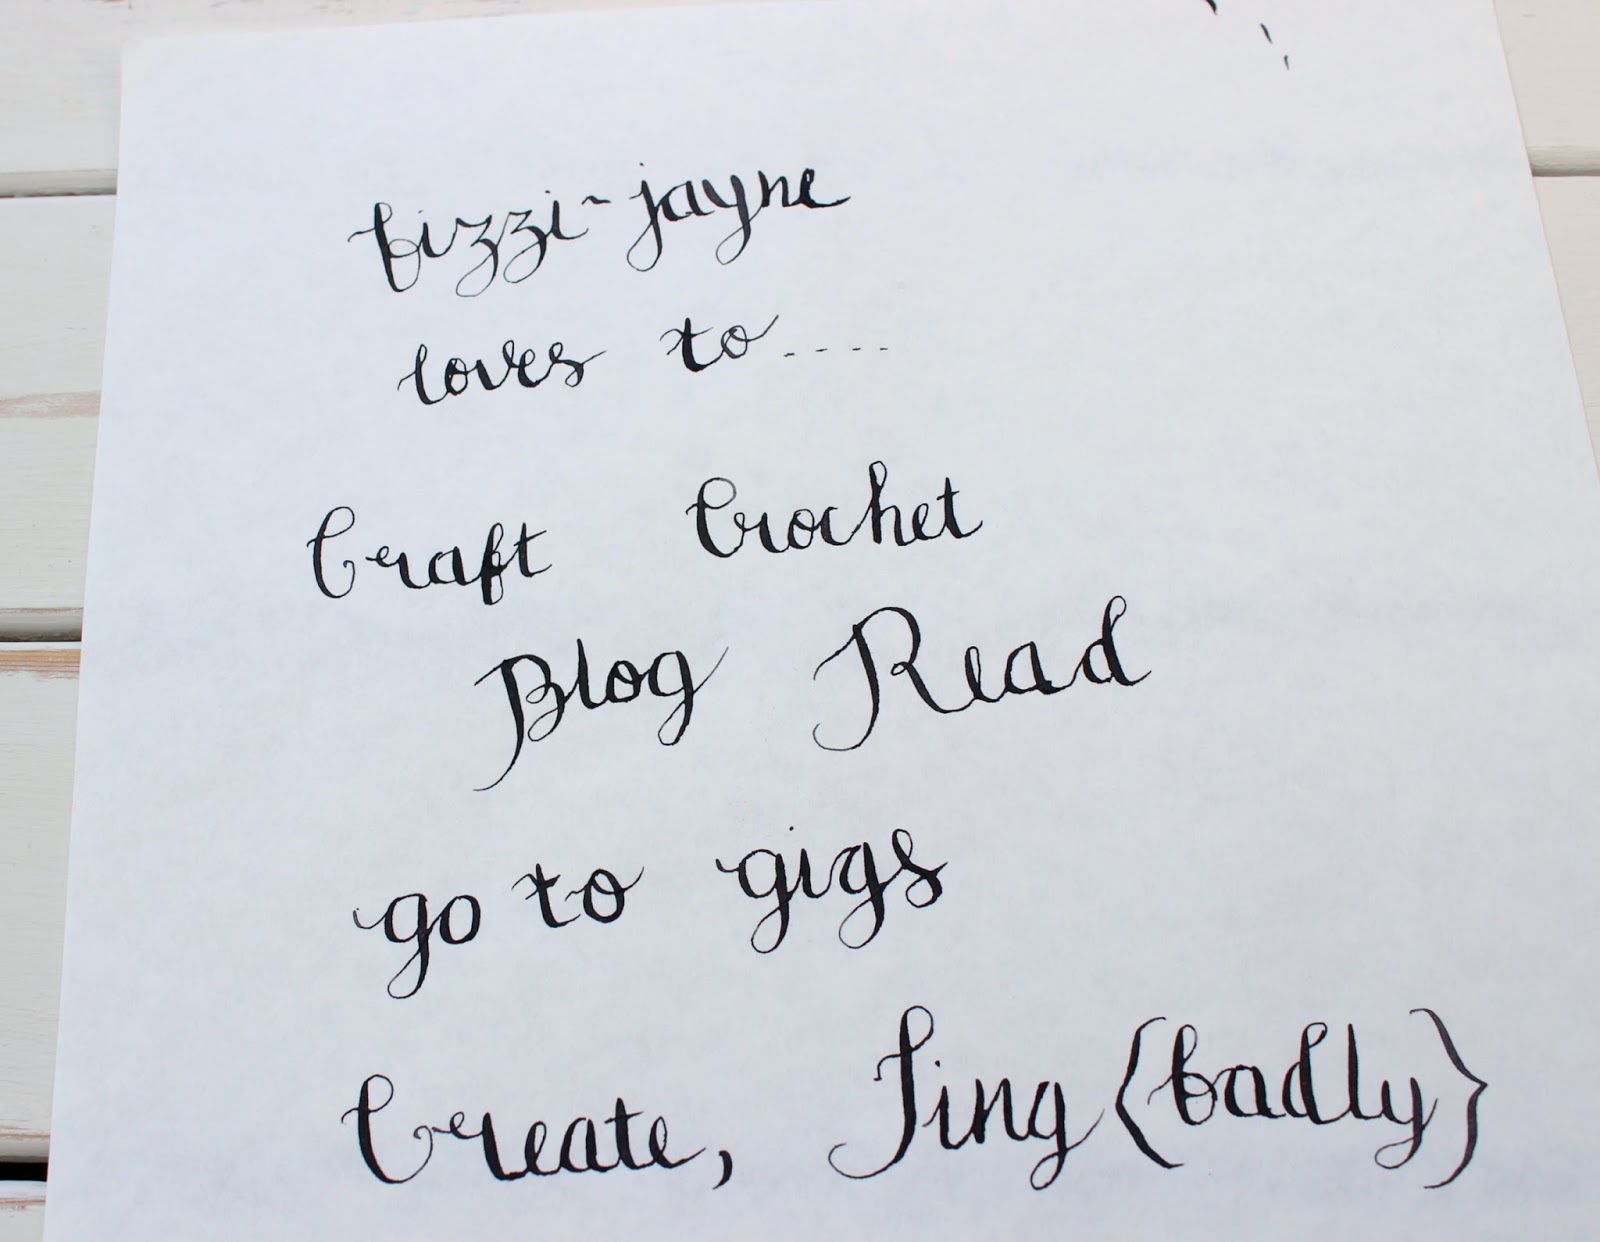 fizzi-jayne
loves to....
Craft Crochet
Blog Read
go to gigs
Create, Sing {badly}